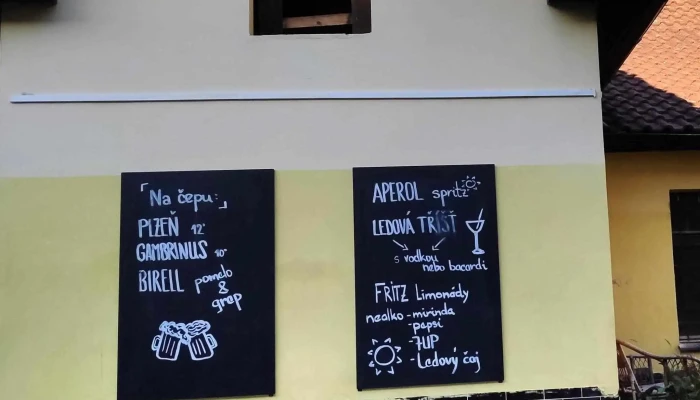 Na čepu:
PLZEŇ 12°
GAMBRINUS 10°
BIRELL pomelo
&
grep
APEROL spritz
LEDOVÁ TŘÍŠŤ
s vodkou
nebo bacardi
FRITZ Limonády
nealko - mirinda
- pepsi
- 7UP
- Ledový čaj